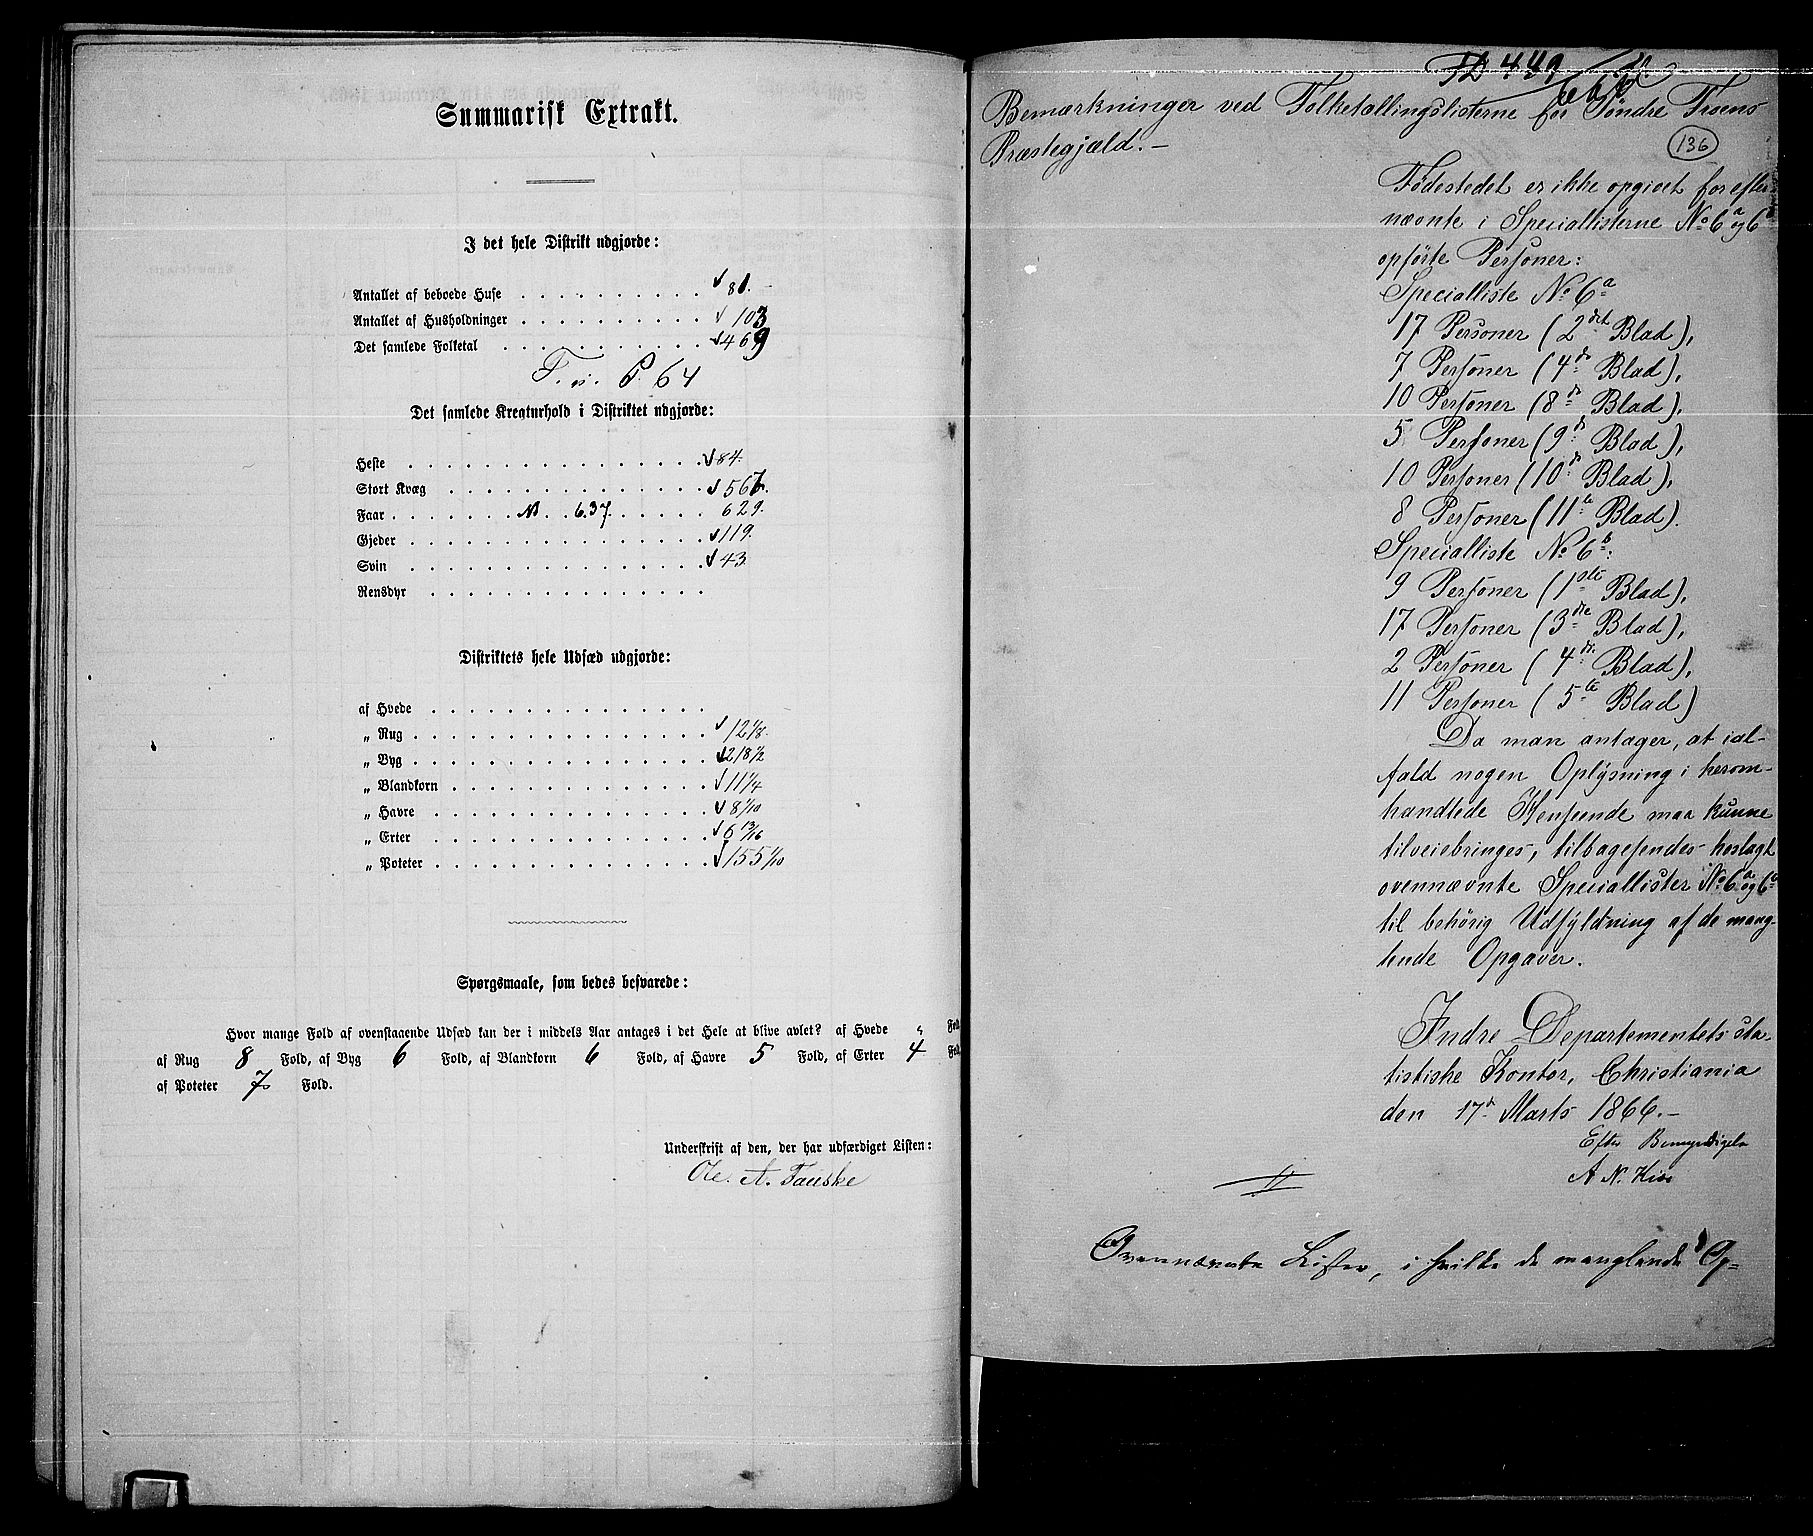 Summarisk Extrakt.
I det hele Distrikt udgjorde:
Antallet af beboede Huse . . . . . . . . . . 81.
Antallet af Husholdninger . . . . . . . . . . 103
Det samlede Folketal . . . . . . . . . . . 469
T. v. P. 64
Det samlede Kreaturhold i Distriktet udgjorde:
Heste . . . . . . . . . . . . . . . . 84.
Stort Kvæg . . . . . . . . . . . . . . 567.
Faar . . . . . . . NB 637. . . . . . 629.
Gjeder . . . . . . . . . . . . . . . . 119.
Svin . . . . . . . . . . . . . . . . 43.
Rensdyr . . . . . . . . . . . . . . .
Distriktets hele Udsæd udgjorde:
af Hvede . . . . . . . . . . . . . . .
„ Rug . . . . . . . . . . . . . . . . 12 1/8.
„ Byg . . . . . . . . . . . . . . . . 218 1/2
„ Blandkorn . . . . . . . . . . . . . . 11 1/4
„ Havre . . . . . . . . . . . . . . . 8 1/10
„ Erter . . . . . . . . . . . . . . . 6 13/16
„ Poteter . . . . . . . . . . . . . . 155 1/10
Spørgsmaale, som bedes besvarede:
Hvor mange Fold af ovenstaaende Udsæd kan der i middels Aar antages i det Hele at blive avlet? af Hvede „ Fold
af Rug 8 Fold, af Byg 6 Fold, af Blandkorn 6 Fold, af Havre 5 Fold, af Erter 4 Fold,
af Poteter 7 Fold.
Underskrift af den, der har udfærdiget Listen:
Ole. A. Fauske
449
Bemærkninger ved Folketællingslisterne for Söndre Froens
Præstegjæld. –
136
Fødestedet er ikke opgivet for efter-
nævnte i Speciallisterne No 6a og 6b
opførte Personer:
Specialliste No 6a
17 Personer (2det Blad),
7 Personer (4de Blad),
10 Personer (8de Blad),
5 Personer (9de Blad),
10 Personer (10de Blad),
8 Personer (11te Blad).
Specialliste No 6b:
9 Personer (1ste Blad),
17 Personer (3die Blad),
2 Personer (4de Blad),
11 Personer (5te Blad)
Da man antager, at ial-
fald nogen Oplysning i herom-
handlede Henseende maa kunne
tilveiebringes, tilbagesendes hoslagt
ovennævnte Speciallister No 6a og 6b
til behörig Udfyldning af de mang-
lende Opgaver.
Indre Departementets sta-
tistiske Kontor, Christiania
den 17d Marts 1866. –
Efter Bemyndigelse
A N. Kiær
Ovennævnte Lister, i hvilke de manglende Op-